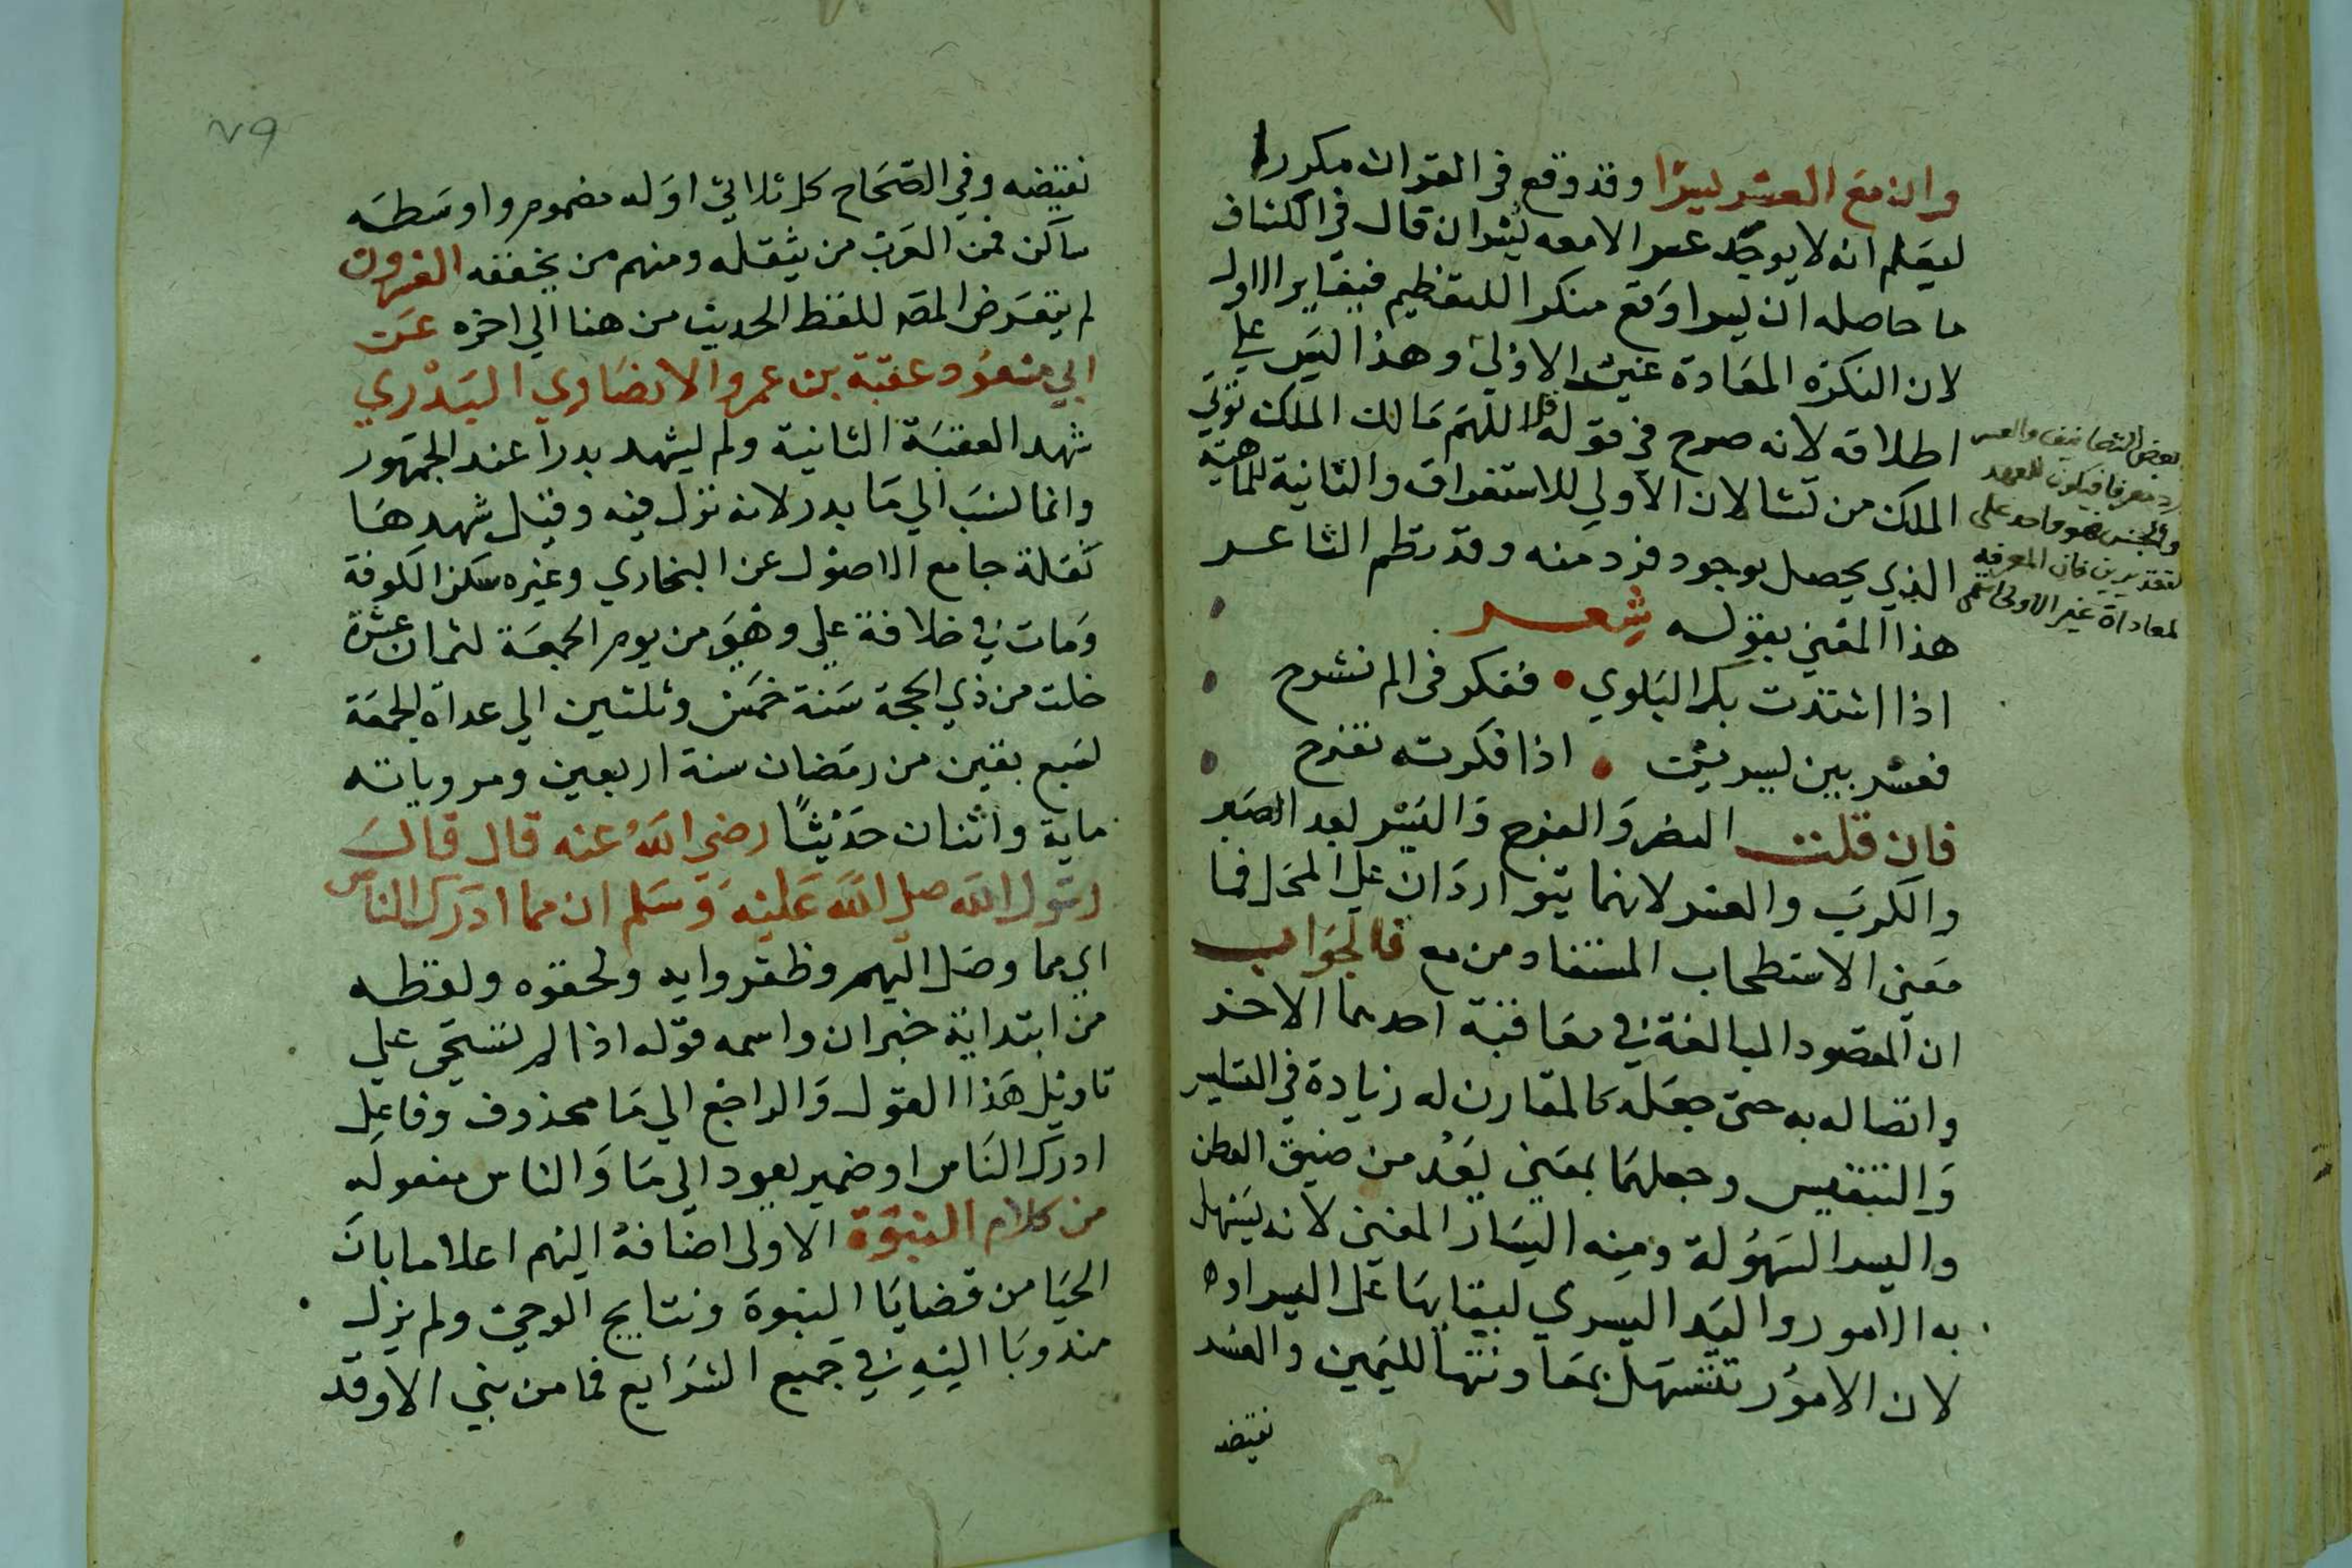 وان مع العسر يسرا وقد وقع في القران مكررا
ليعلم انه لا يوجد عسر الا معه يسران قال في الكشاف
ما حاصله ان يسرا وقع منكرا للتعظيم فيغاير الاول
لان النكرة المعادة غير الاولى وهذا ليس علي
اطلاقه لانه صرح في قوله قل اللهم مالك الملك توتي
الملك من تشا لان الاولي للاستغراق والثانية للماهية
الذي يحصل بوجود فرد منه وقد نظم الشاعر
هذا المعني بقوله شعر
اذا اشتدت بك البلوي • ففكر في الم نشرح
فعسر بين يسرين • اذا فكرته تفرح
فان قلت النصر والفرج واليسر بعد الصبر
والكرب والعسر لانهما يتواردان علي المحل فما
معني الاستطحاب المستفاد من مع فالجواب
ان المقصود المبالغة في معاقبة احدهما الاخر
واتصاله به حتى جعله كالمقارن له زيادة في التسلير
والتنفيس وجعلهما بمعني بعد من ضيق العطن
واليسر السهولة ومنه اليسار المغني لانه يسهل
به الامور واليد اليسري لبقابها علي اليسر اوه
لان الامور تتسهل بمعاونتها لليمين والعسر
نقيضه
بعض التصانيف والعسر
رد معرفا فيكون للعهد
والجنس فهو واحد على
لتقديرين فان المعرفة
لمعاداة غير الاولى
٧٩
نقيضه وفي الصحاح كل ثلاثي اوله مضموم واوسطه
ساكن فمن العرب من يثقله ومنهم من يخففه العشرون
لم يتعرض المصه للفظ الحديث من هنا الي اخره عن
ابي مسعود عقبة بن عمرو الانصاري البدري
شهد العقبة الثانية ولم يشهد بدرا عند الجمهور
وانما نسب الي ما بدر لانه نزل فيه وقيل شهدها
نقله جامع الاصول عن البخاري وغيره سكن الكوفة
ومات في خلافة علي وهو من يوم الجمعة لثمان عشرة
خلت من ذي الحجة سنة خمس وثلثين الي عداة الجمعة
لسبع بقين من رمضان سنة اربعين ومروياته
ماية واثنان حديثا رضي الله عنه قال قال
رسول الله صلي الله عليه وسلم ان مما ادرك الناس
اي مما وصل اليهم وظفروا به ولحقوه ولفظه
من ابتداية خبر ان واسمه قوله اذا لم تستحي علي
تاويل هذا القول والراجع الي ما محذوف وفاعل
ادرك الناس او ضمير يعود الي ما والناس مفعوله
من كلام النبوة الاولى اضافة اليهم اعلاما بان
الحيا من قضايا النبوة ونتايج الوحي ولم يزل
مندوبا اليه في جميع الشرايع فما من نبي الا وقد